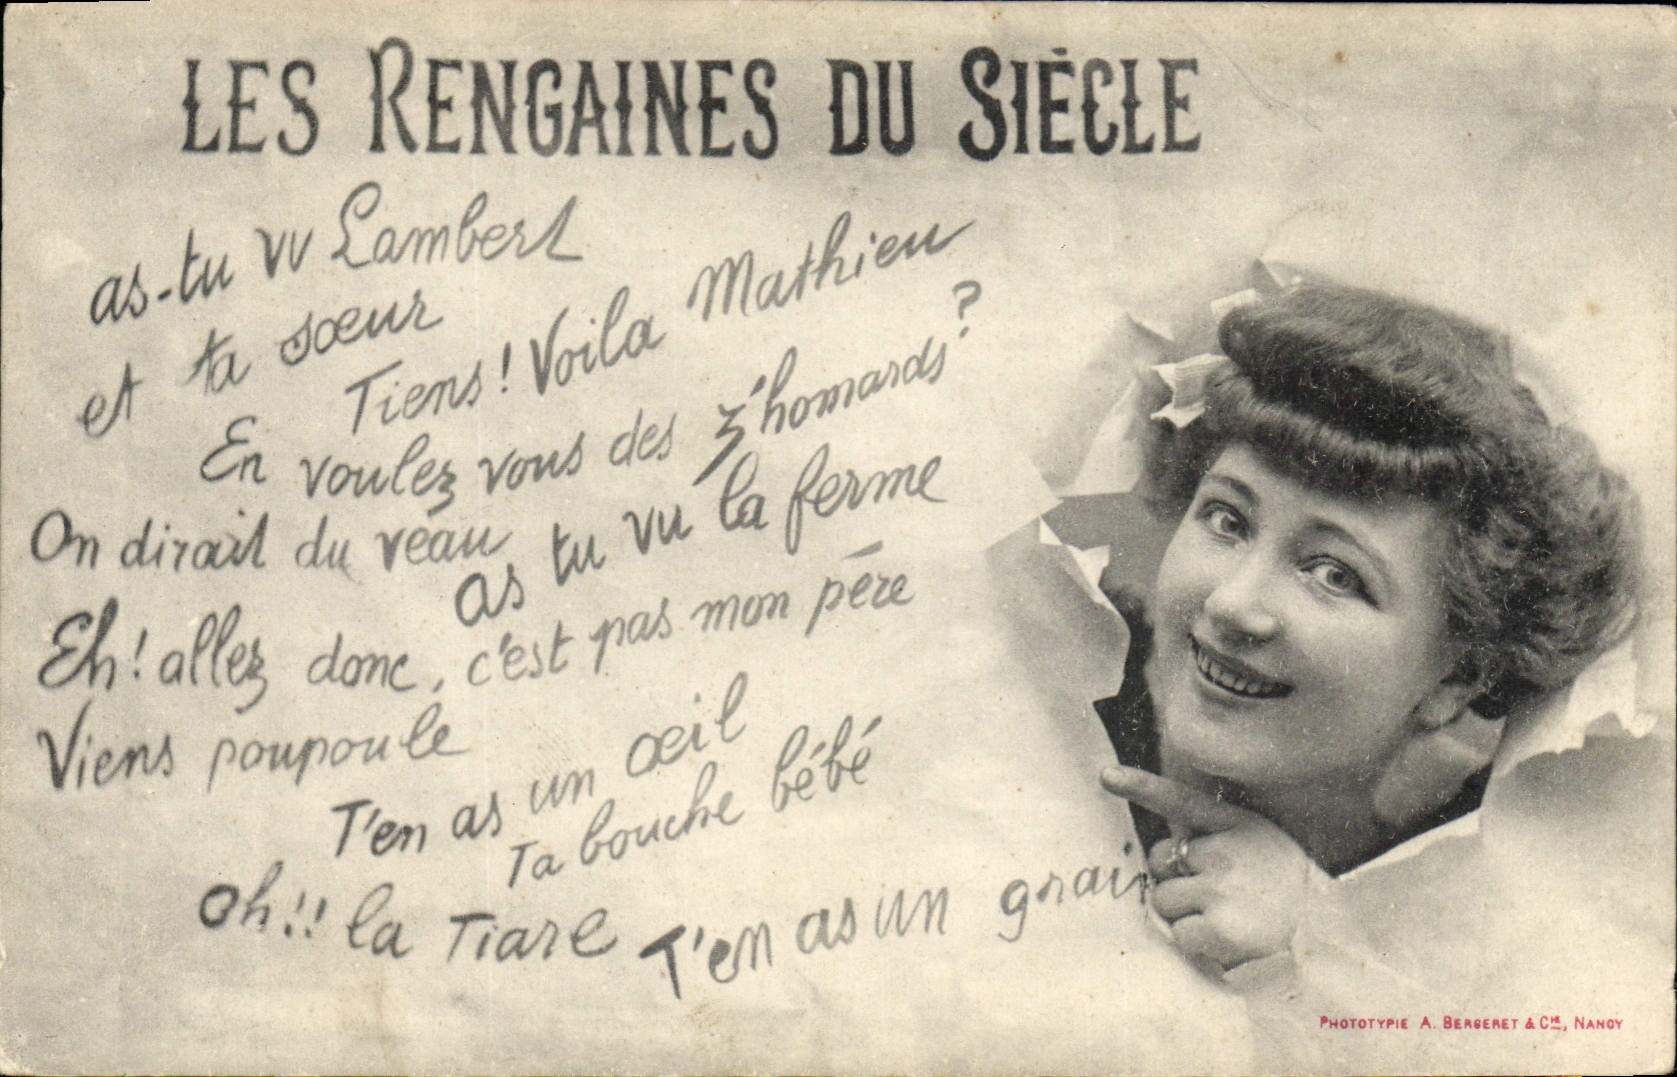 LES RENGAINES DU SIÈCLE
as-tu vu Lambert
et ta sœur
Tiens! Voila Mathieu
En voulez vous des z'homards?
On dirait du veau
as tu vu la ferme
Eh! allez donc, c'est pas mon père
Viens poupoule
T'en as un œil
Ta bouche bébé
oh!! la Tiare
T'en as un grain
PHOTOTYPIE A. BERGERET & Cie, NANCY